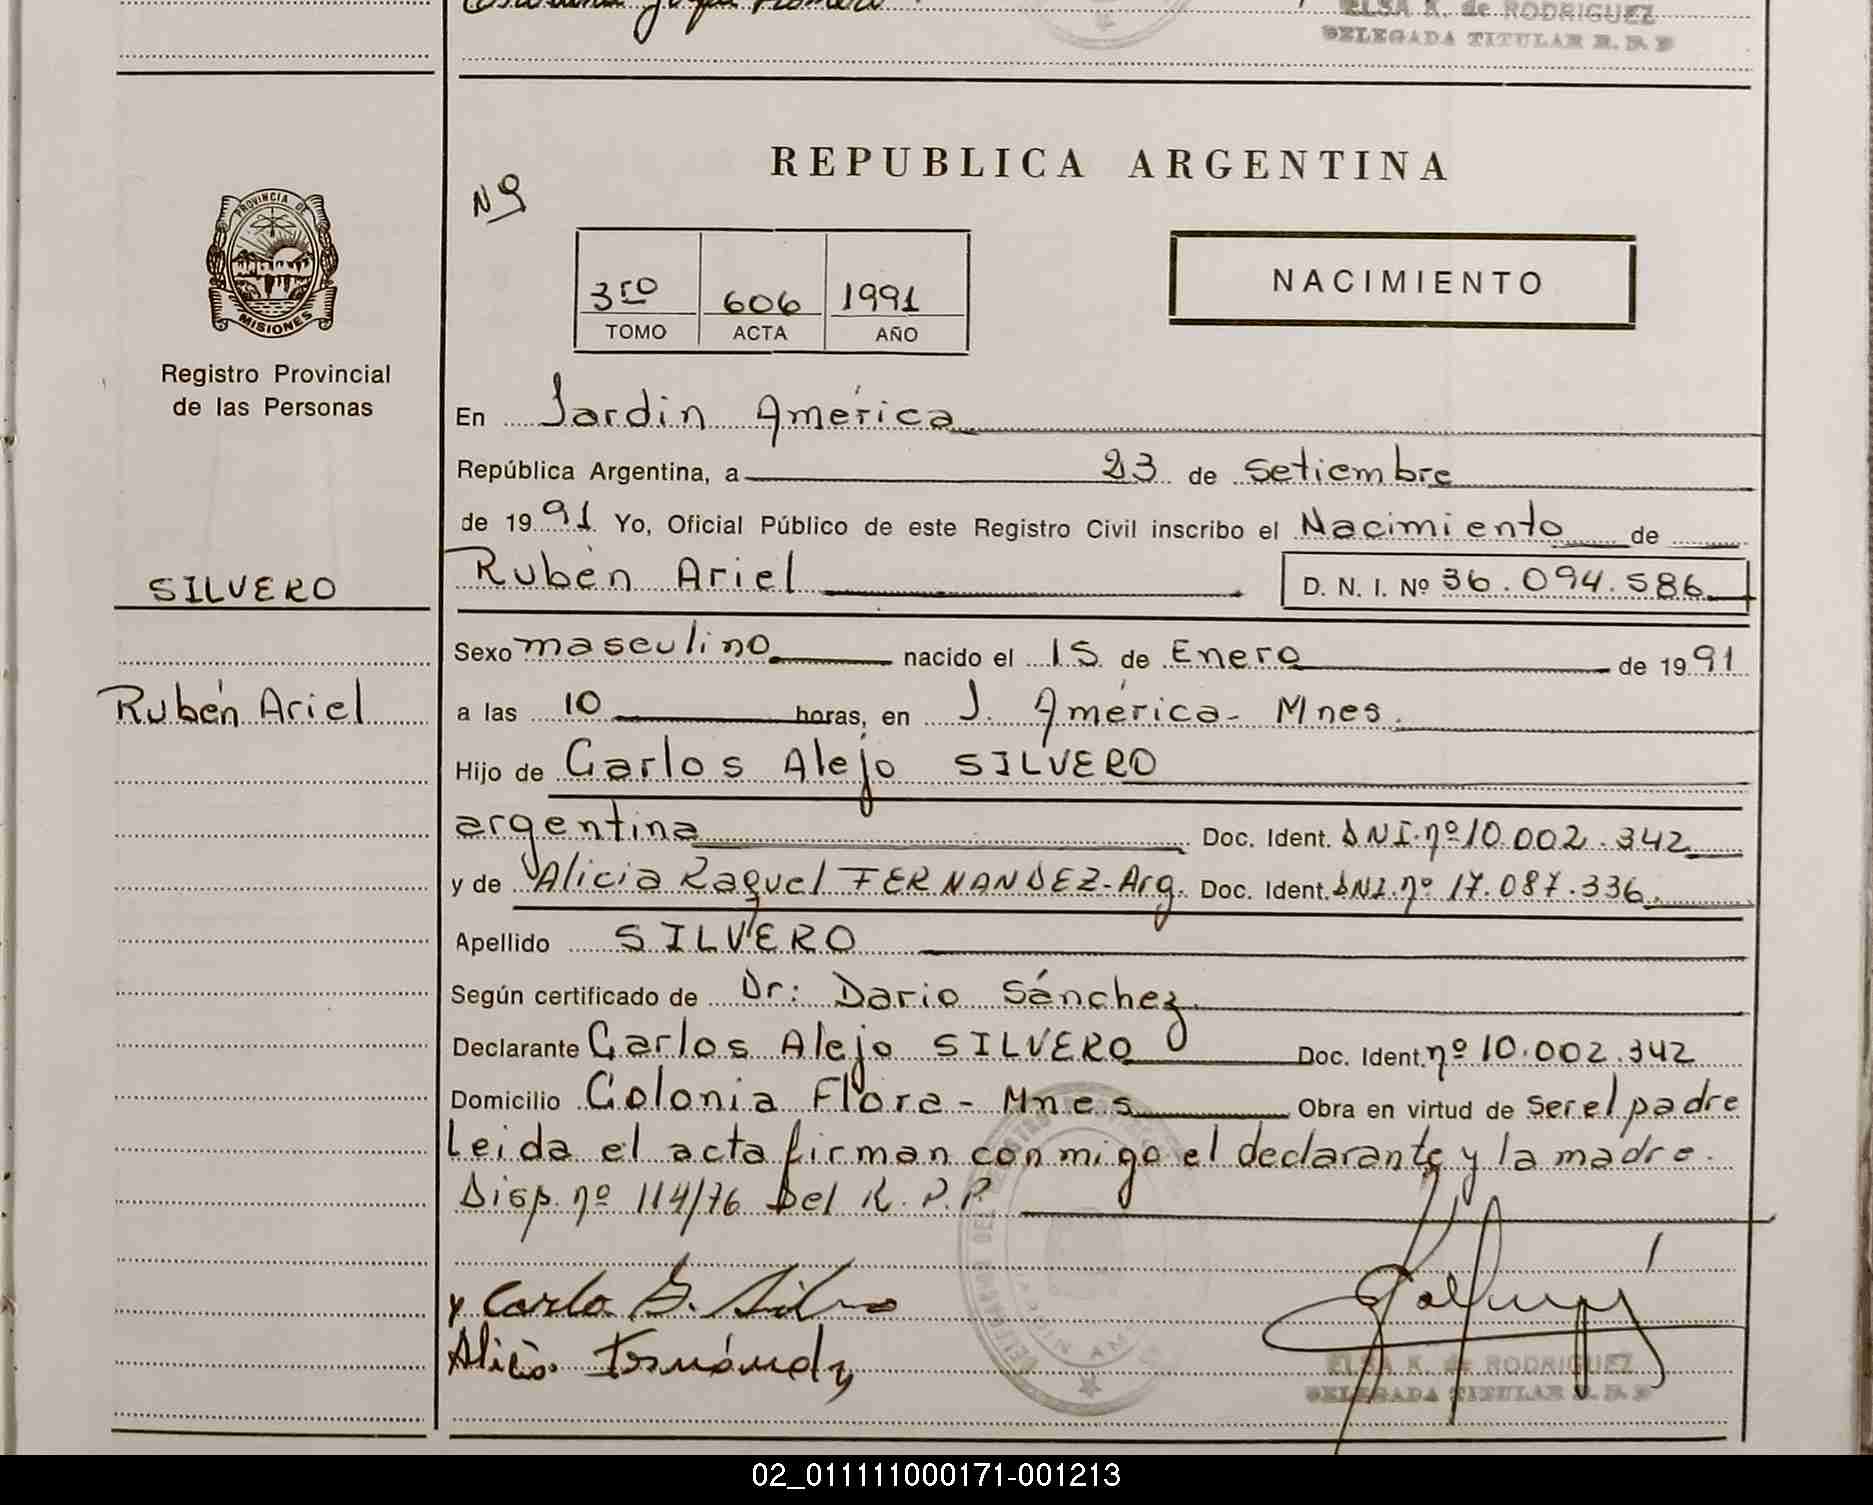 ELSA K. de RODRIGUEZ
DELEGADA TITULAR R. P. P
REPUBLICA ARGENTINA
Nº
3ro 606 1991
TOMO ACTA AÑO
NACIMIENTO
PROVINCIA DE
MISIONES
Registro Provincial
de las Personas
SILVERO
Rubén Ariel
En Jardin América
República Argentina, a 23 de setiembre
de 1991 Yo, Oficial Público de este Registro Civil inscribo el Nacimiento de
Rubén Ariel D. N. I. Nº 36.094.586
Sexo masculino nacido el 15 de Enero de 1991
a las 10 horas, en J. América - Mnes.
Hijo de Carlos Alejo SILVERO
argentina Doc. Ident. DNI.nº10.002.342
y de Alicia Raquel FERNANDEZ-Arg. Doc. Ident. DNI.nº 17.087.336.
Apellido SILVERO
Según certificado de Dr: Dario Sánchez
Declarante Carlos Alejo SILVERO Doc. Ident. nº 10.002.342
Domicilio Colonia Flora - Mnes Obra en virtud de ser el padre
Leida el acta firman conmigo el declarante y la madre.
Disp. nº 114/76 Del R.P.P.
Alicia Fernández
ELSA K. de RODRIGUEZ
DELEGADA TITULAR R. P. P
02_011111000171-001213